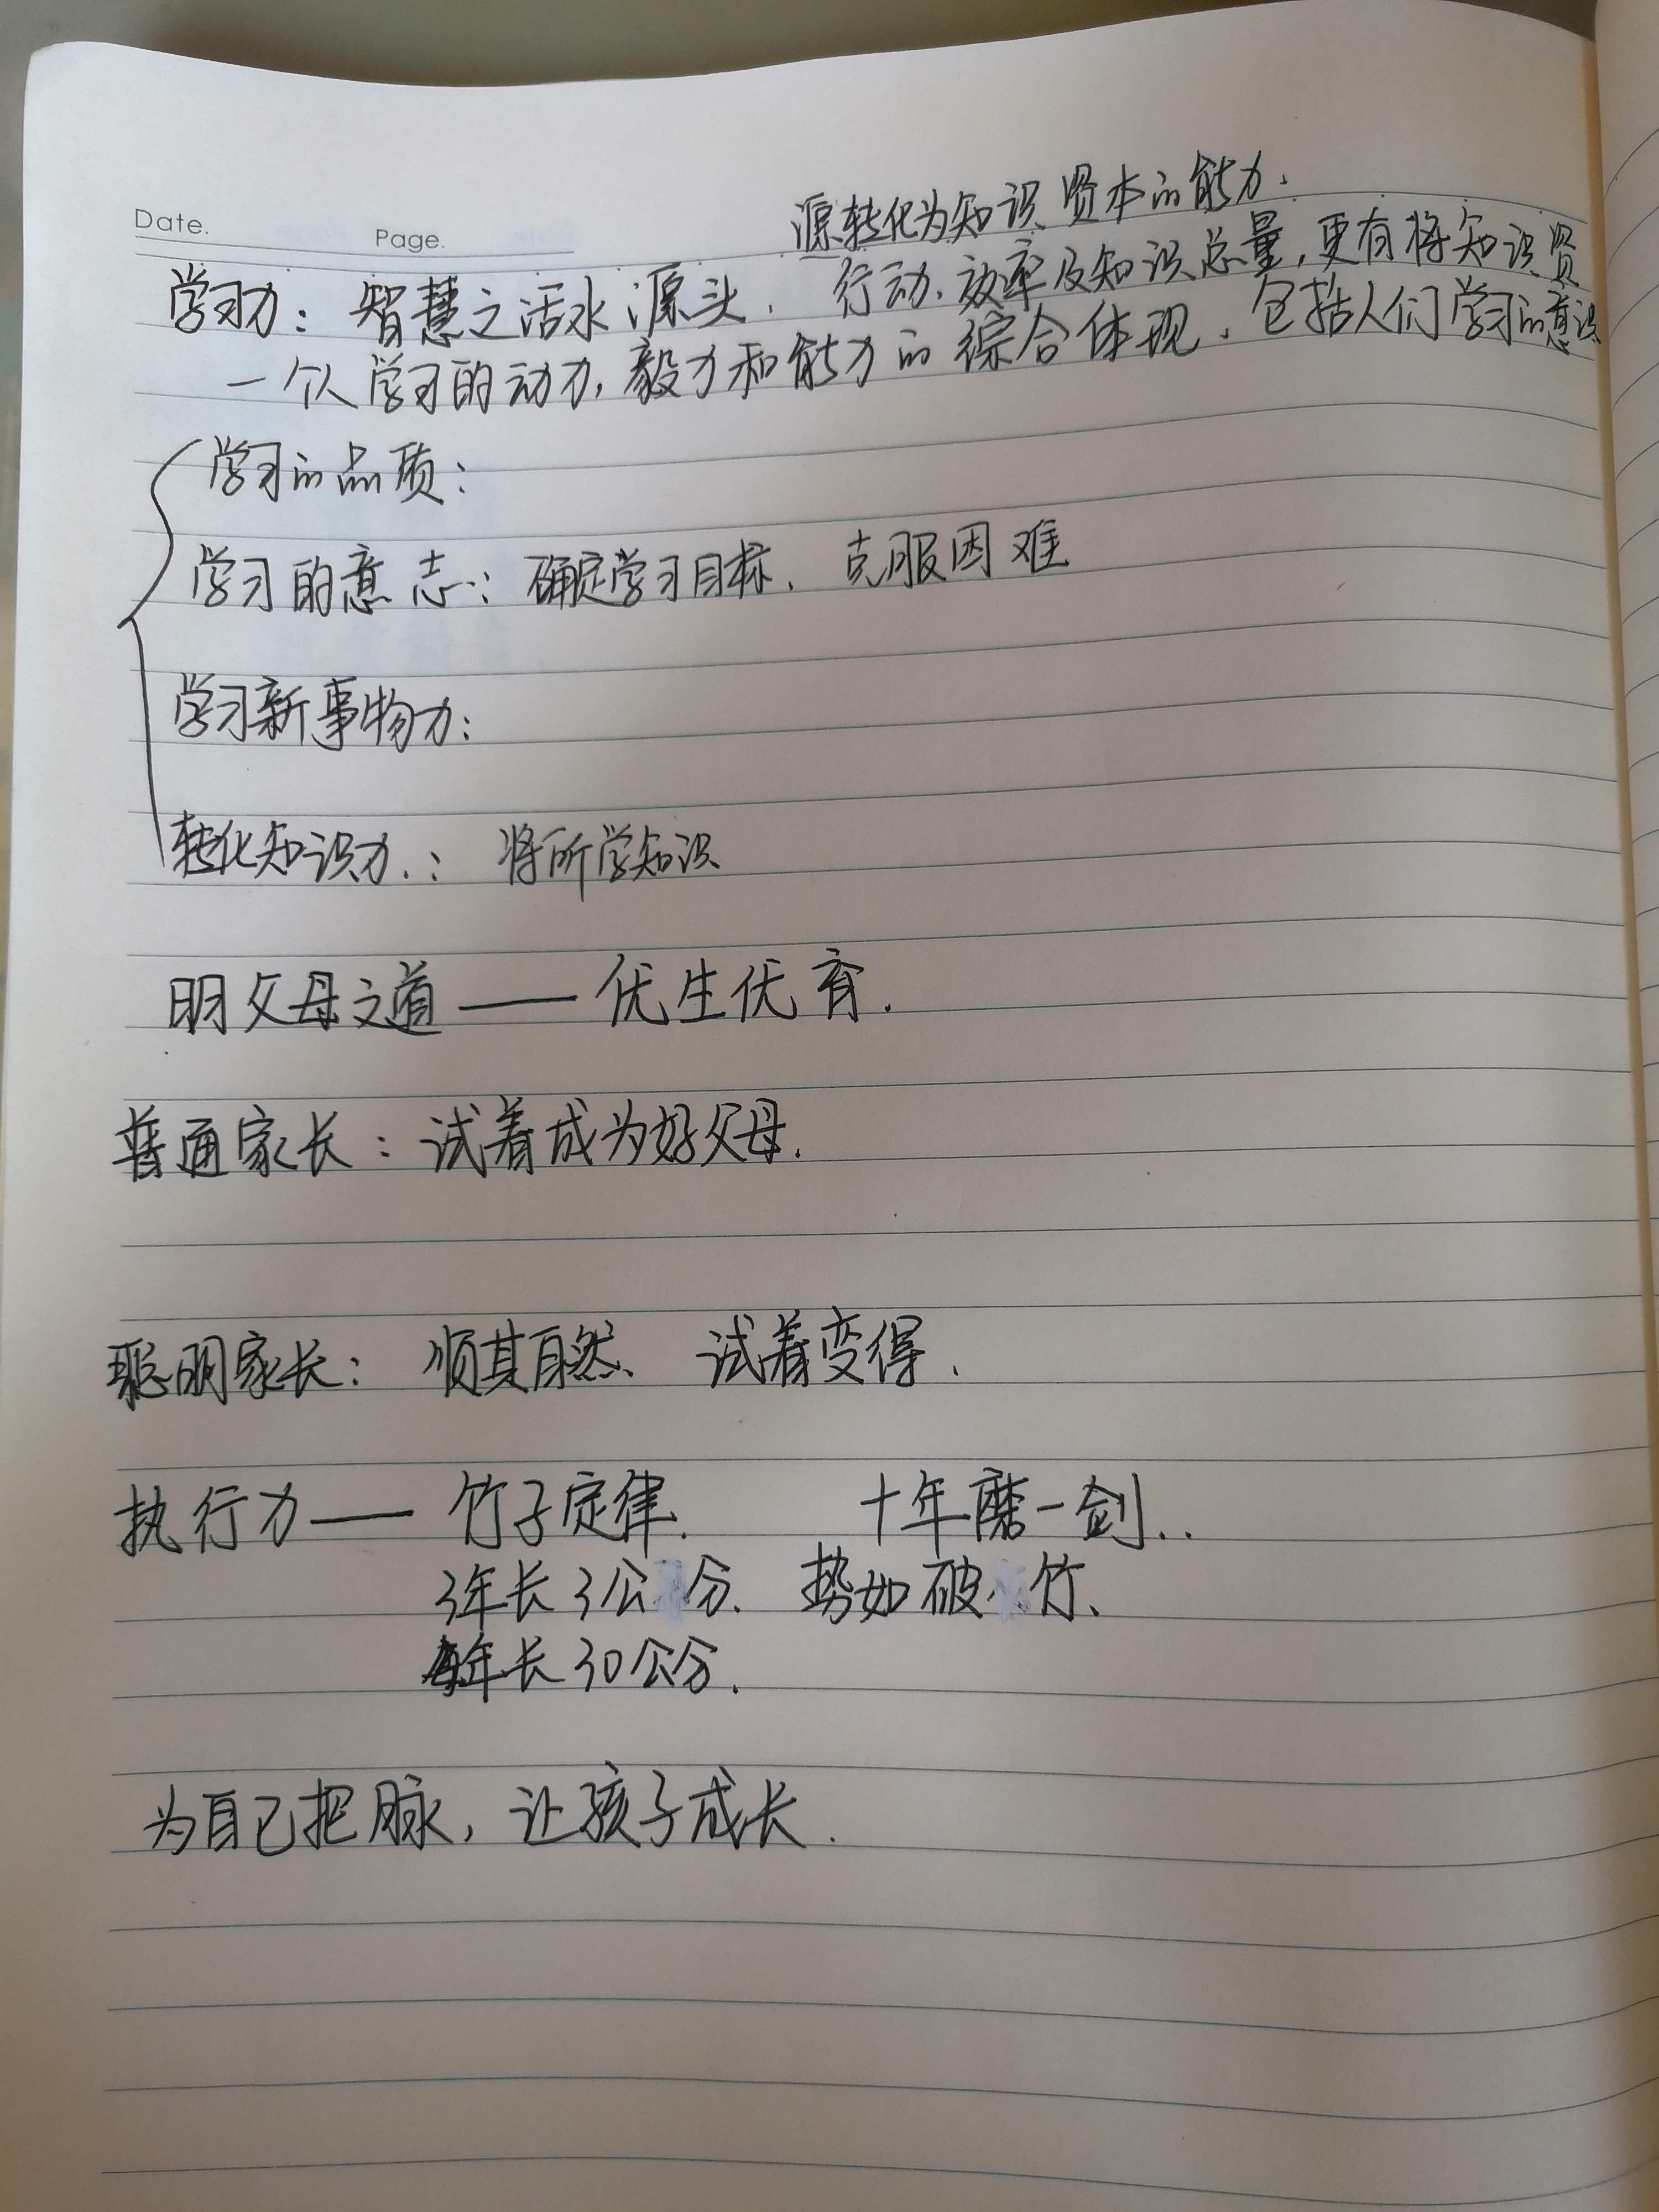 源转化为知识资本的能力.
Date.
Page.
学习力：智慧之活水源头. 行动、效率及知识总量,更有将知识资
一个人学习的动力,毅力和能力的综合体现、包括人们学习的意识
学习的品质：
学习的意志：确定学习目标、克服困难
学习新事物力：
转化知识力.：将所学知识
明父母之道——优生优育.
普通家长：试着成为好父母.
聪明家长：顺其自然、试着变得.
执行力——竹子定律. 十年磨一剑..
3年长3公分. 势如破竹、
每年长30公分.
为自己把脉,让孩子成长.